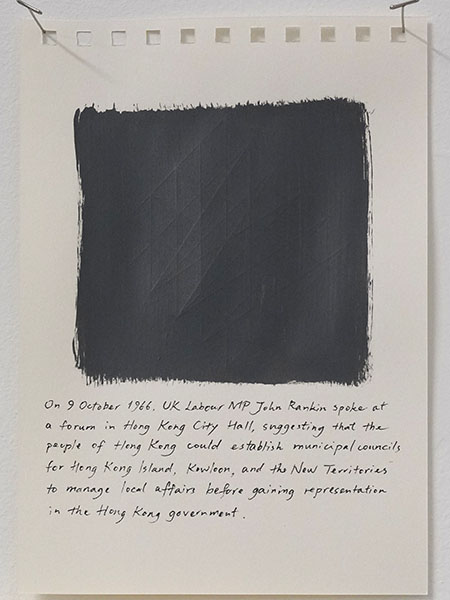 On 9 October 1966, UK Labour MP John Rankin spoke at
a forum in Hong Kong City Hall, suggesting that the
people of Hong Kong could establish municipal councils
for Hong Kong Island, Kowloon, and the New Territories
to manage local affairs before gaining representation
in the Hong Kong government.